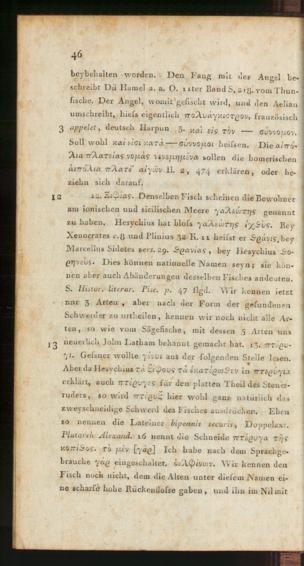 46
beybehalten worden. Den Fang mit der Angel be-
schreibt Dü Hamel a. a. O. 11ter Band S. 218. vom Thun-
fische. Der Angel, womit gefischt wird, und den Aelian
umschreibt, hiess eigentlich πολυάγκιστρον, französisch
3 appelet, deutsch Harpun. 3. καὶ εἰς τὸν — σύννομον.
Soll wohl καὶ εἰσι κατὰ — σύννομοι heissen. Die αἰπό-
λια πλατείας νομὰς νενεμημένα sollen die homerischen
αἰπόλια πλατέ᾽ αἰγῶν Il. 2, 474 erklären, oder be-
ziehn sich darauf.
12 12. Ξιφίας. Denselben Fisch scheinen die Bewohner
am ionischen und sicilischen Meere γαλεώτης genannt
zu haben. Hesychius hat bloss γαλεώτης ἰχθύς. Bey
Xenocrates c. 8 und Plinius 32 K. 11 heisst er Θρανίς, bey
Marcellus Sidetes vers. 29. Θρανίας, bey Hesychius Θο-
ρηνεύς. Dies können nationelle Namen seyn; sie kön-
nen aber auch Abänderungen desselben Fisches andeuten.
S. Histor. literar. Pisc. p. 47 flgd. Wir kennen ietzt
nur 3 Arten, aber nach der Form der gefundenen
Schwerder zu urtheilen, kennen wir noch nicht alle Ar-
ten, so wie vom Sägefische, mit dessen 5 Arten uns
13 neuerlich John Latham bekannt gemacht hat. 13. πτέρυ-
γι. Gesner wollte γένυι aus der folgenden Stelle lesen.
Aber da Hesychius τὰ ξίφους τὰ ἑκατέρωθεν in πτερύγια
erklärt, auch πτέρυγες für den platten Theil des Steuer-
ruders, so wird πτέρυξ hier wohl ganz natürlich das
zweyschneidige Schwerd des Fisches ausdrücken. Eben
so nennen die Lateiner bipennis securis, Doppelaxt.
Plutarch Alexand. 16 nennt die Schneide πτέρυγα τῆς
κοπίδος. τὸ μὲν [γὰρ] Ich habe nach dem Sprachge-
brauche γὰρ eingeschaltet. δελφίνων. Wir kennen den
Fisch noch nicht, dem die Alten unter diesem Namen ei-
ne scharfe hohe Rückenflosse gaben, und ihn im Nil mit